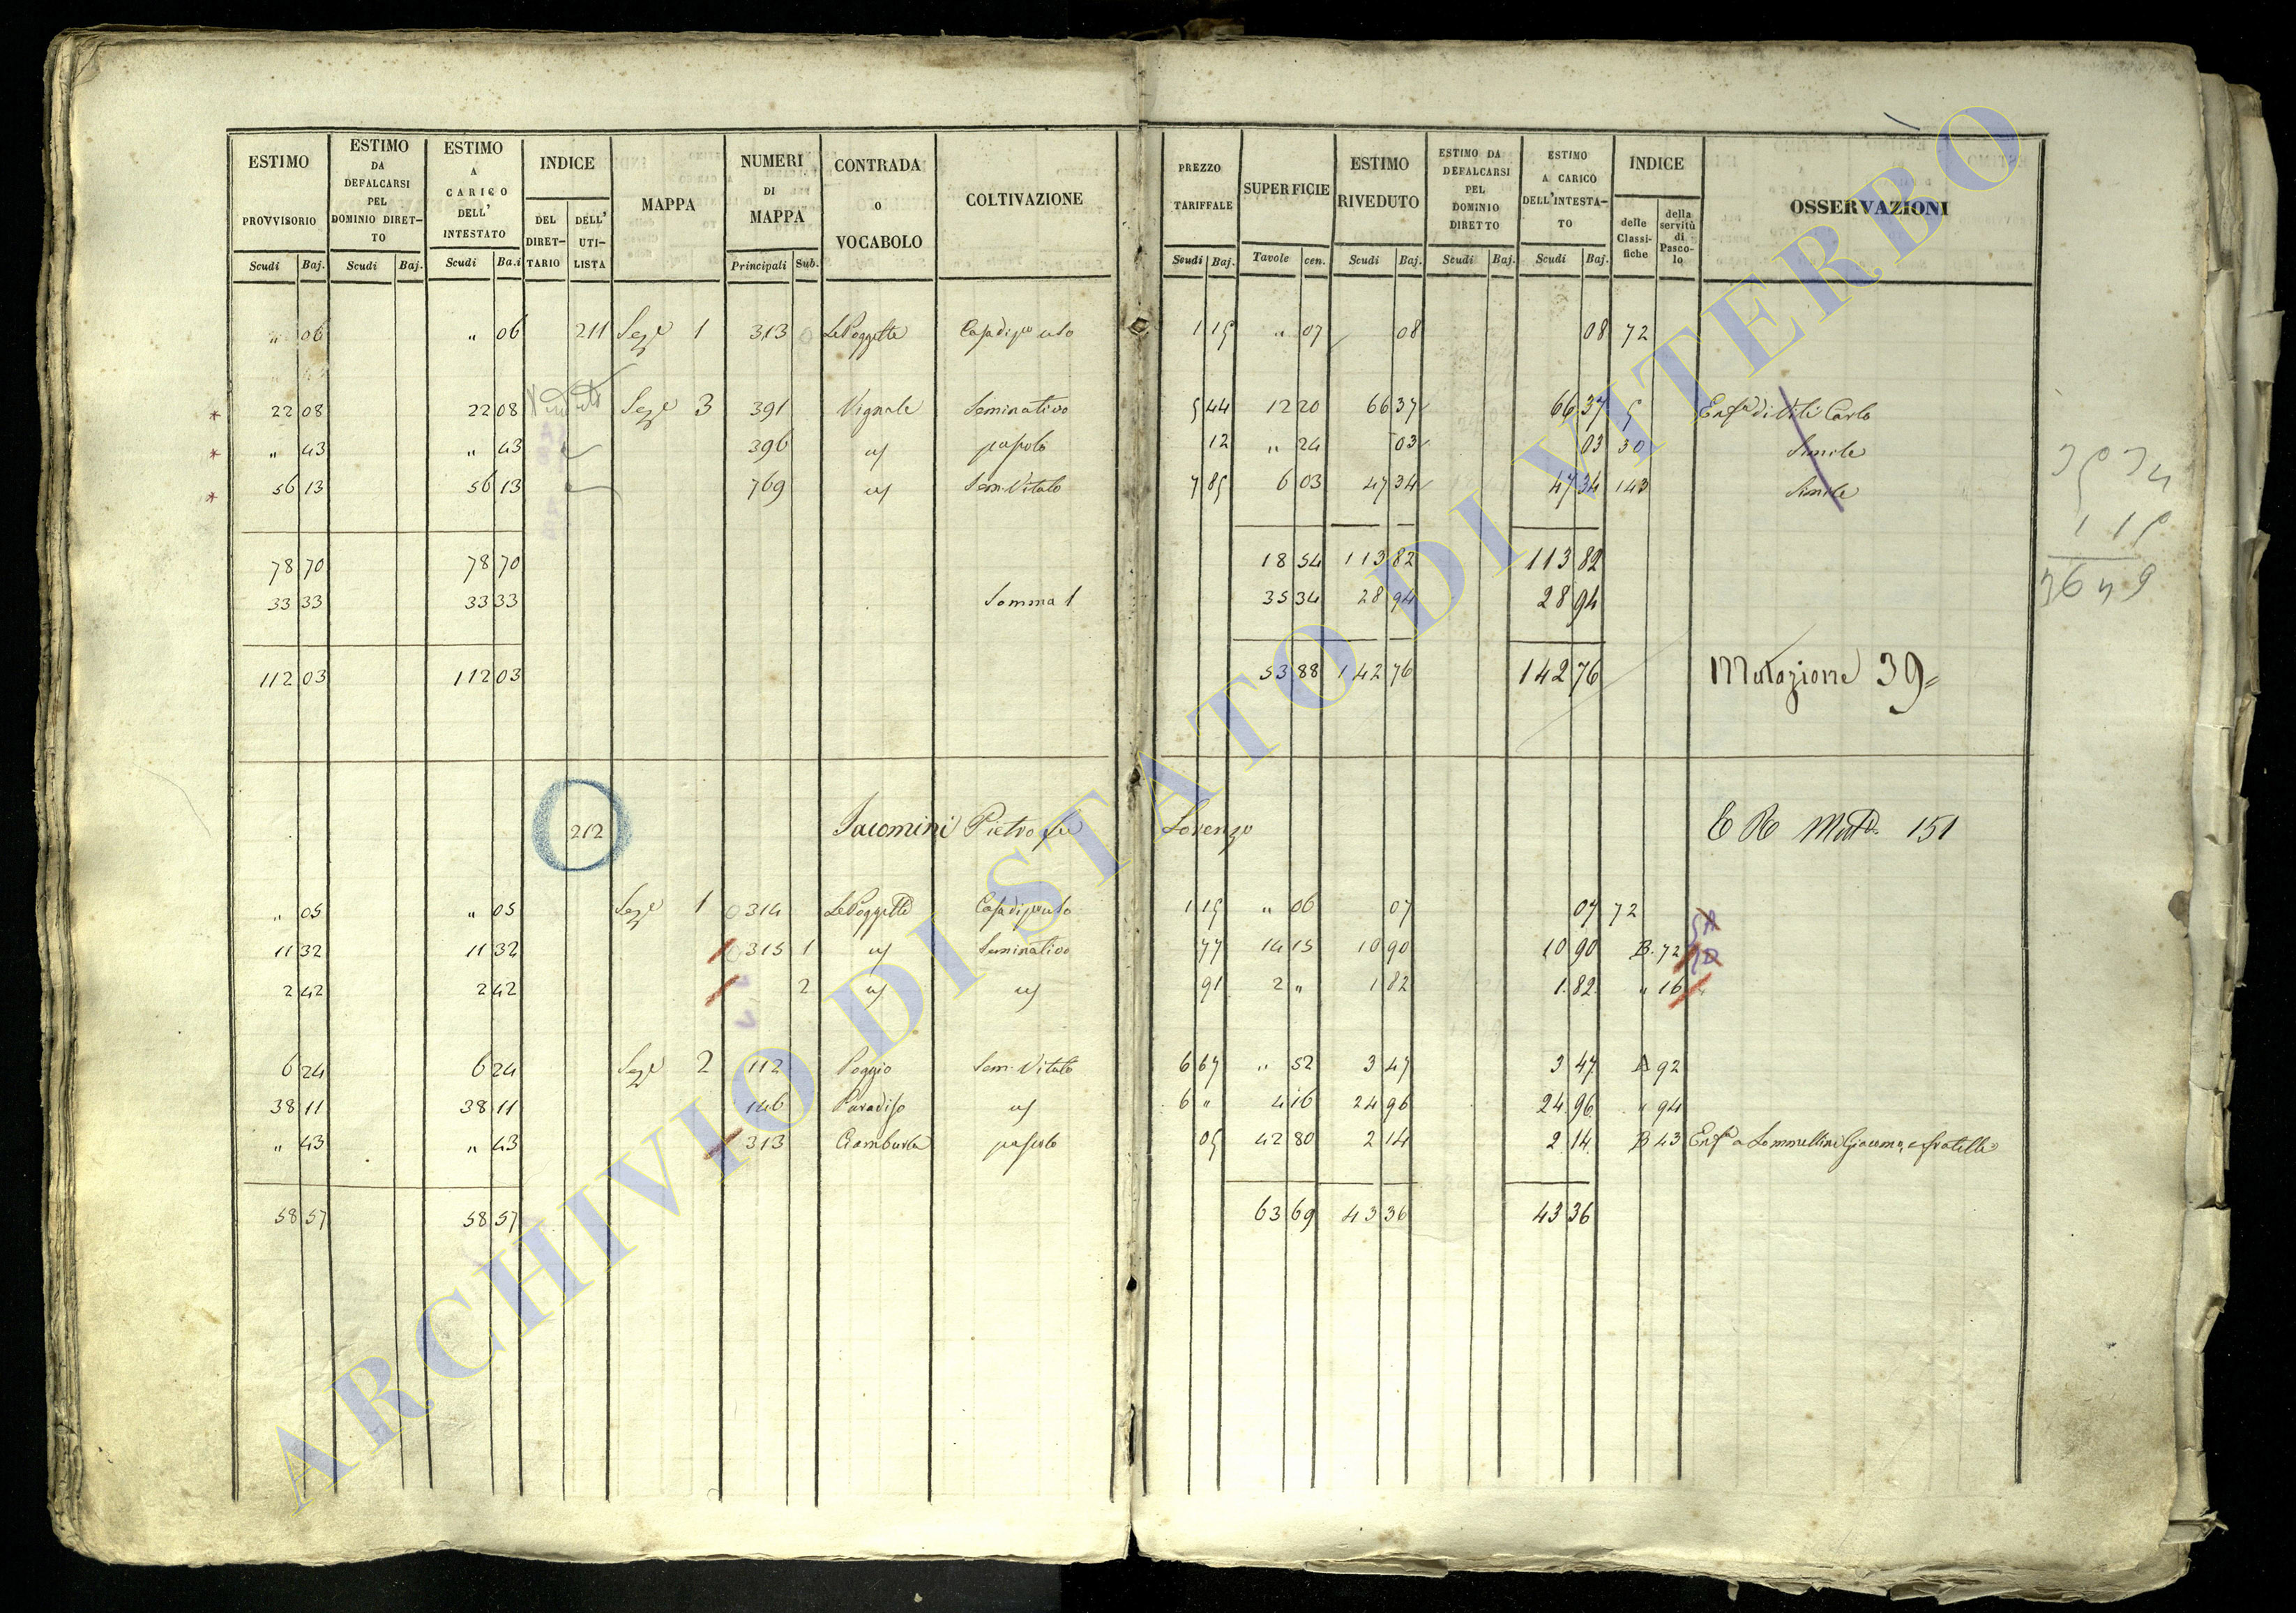 ESTIMO PROVVISORIO Scudi Baj. | ESTIMO DA DEFALCARSI PEL DOMINIO DIRET-TO Scudi Baj. | ESTIMO A CARICO DELL' INTESTATO Scudi Ba.i | INDICE DEL DIRET-TARIO DELL' UTI-LISTA | MAPPA | NUMERI DI MAPPA Principali Sub. | CONTRADA O VOCABOLO | COLTIVAZIONE | PREZZO TARIFFALE Scudi Baj. | SUPERFICIE Tavole cen. | ESTIMO RIVEDUTO Scudi Baj. | ESTIMO DA DEFALCARSI PEL DOMINIO DIRETTO Scudi Baj. | ESTIMO A CARICO DELL'INTESTA-TO Scudi Baj. | INDICE delle Classi-fiche della servitù di Pasco-lo | OSSERVAZIONI
" 06 " 06 211 Seze 1 313 Le Poggette Casa di po uso 1 15 " 07 08 08 72
22 08 22 08 Seze 3 391 Vignale Seminativo 5 44 12 20 66 37 66 37 5 Enfa di Viti Carlo
" 43 " 43 396 id pascolo 12 " 24 03 03 30 Simile
56 13 56 13 769 id Sem. Vitato 7 85 6 03 47 34 47 34 143 Simile
78 70 78 70 18 54 113 82 113 82
33 33 33 33 Somma 1 35 34 28 94 28 94
112 03 112 03 53 88 142 76 142 76 Mutazione 39=
212 Iacomini Pietro fu Lorenzo E R Muta 151
" 05 " 05 Seze 1 314 Le Poggette Casa di po uso 1 15 " 06 07 07 72
11 32 11 32 315 1 id Seminativo 77 14 15 10 90 10 90 B. 72
2 42 2 42 2 id id 91 2 " 1 82 1.82 " 16
6 24 6 24 Seze 2 112 Poggio Sem. Vitato 6 67 " 52 3 47 3 47 A 92
38 11 38 11 146 Paradiso id 6 " 4 16 24 96 24.96 " 94
" 43 " 43 313 pascolo 05 42 80 2 14 2.14. B 43 Enfa a Sommellini Giacomo e fratelli
58 57 58 57 63 69 43 36 43 36
ARCHIVIO DI STATO DI VITERBO